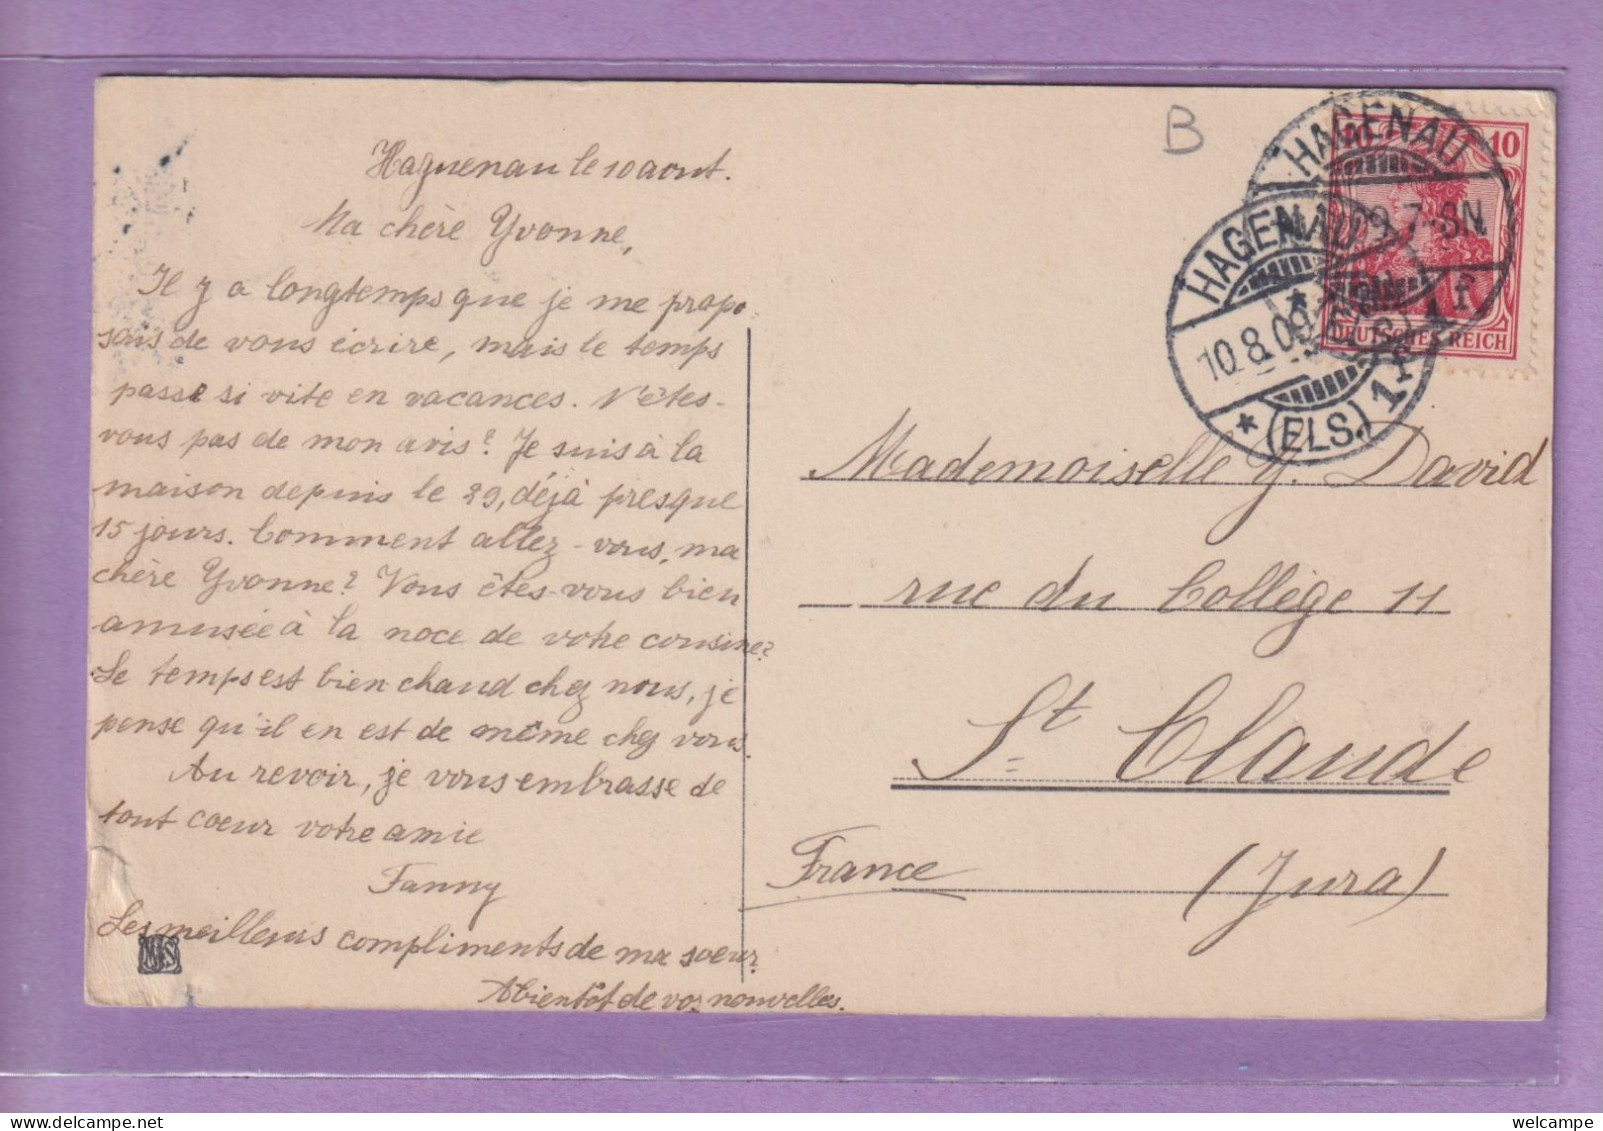 B
HAGENAU
10
HAGENAU
9. 7-8N
10.8.09
(ELS.)
1f
DEUTSCHES REICH
Haguenau le 10 aout.
Ma chère Yvonne,
Il y a longtemps que je me propo-
sais de vous écrire, mais le temps
passe si vite en vacances. N'êtes-
vous pas de mon avis? Je suis à la
maison depuis le 29, déjà presque
15 jours. Comment allez-vous, ma
chère Yvonne? Vous êtes-vous bien
amusée à la noce de votre cousine?
Le temps est bien chaud chez nous, je
pense qu'il en est de même chez vous.
Au revoir, je vous embrasse de
tout coeur votre amie
Fanny
Les meilleurs compliments de ma soeur.
A bientôt de vos nouvelles.
Mademoiselle Y. David
rue du Collège 11
St Claude
France (Jura)
welcampe welcampe